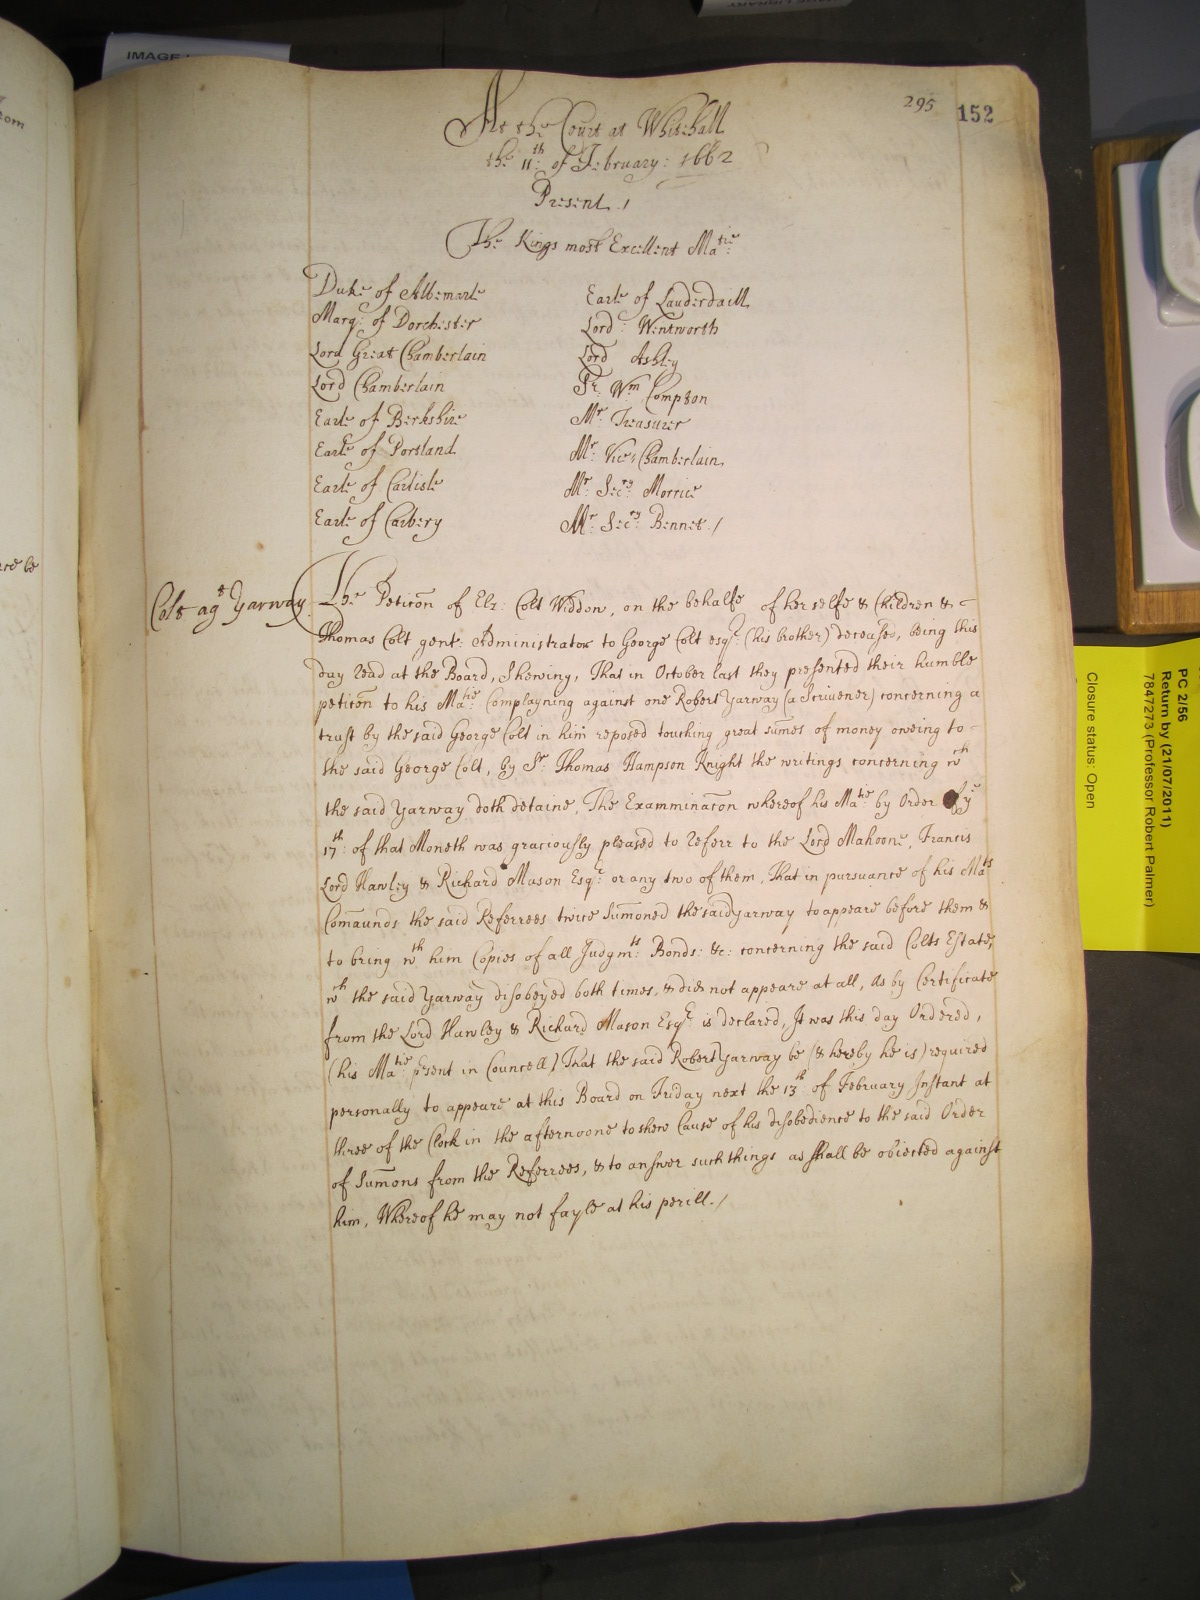 IMAGE
295
152
At the Court at Whitehall
the 11th: of February: 1662
Present /
The Kings most Excellent Matie:
Duke of Albemarle
Marq: of Dorchester
Lord Great Chamberlain
Lord Chamberlain
Earle of Berkshire
Earle of Portland
Earle of Carlisle
Earle of Carbery
Earle of Lauderdaill
Lord: Wentworth
Lord Ashley
Sr. Wm Compton
Mr. Treasurer
Mr. Vice Chamberlain
Mr. Secry: Morrice
Mr. Secry: Bennet /
Colt agt Yarway
The Peticōn of Eliz: Colt Widdow, on the behalfe of her selfe & Children &
Thomas Colt gent: Administrator to George Colt esqr: (his brother) deceased, being this
day read at the Board, Shewing, That in October last they presented their humble
peticōn to his Matie: Complayning against one Robert Yarway (a Scrivener) concerning a
trust by the said George Colt in him reposed touching great sum̄es of money oweing to
the said George Colt, by Sr. Thomas Hampson Knight the writings concerning wch
the said Yarway doth detaine, The Examminacōn whereof his Matie: by Order of ye
17th: of that Moneth was graciously pleased to referr to the Lord Mahoone, Francis
Lord Hawley & Richard Mason Esqr: or any two of them, That in pursuance of his Mats
Com̄aunds the said Referrees twice Sum̄oned the said Yarway to appeare before them &
to bring wth him Copies of all Judgmts: Bonds: &c: concerning the said Colts Estate,
wch the said Yarway disobeyed both times, & did not appeare at all, As by Certificate
from the Lord Hawley & Richard Mason Esqr is declared, It was this day Ordered,
(his Matie: p̄sent in Councell) That the said Robert Yarway be (& hereby he is) required
personally to appeare at this Board on Friday next the 13th of February Instant at
three of the Clock in the afternoone to shew Cause of his disobedience to the said Order
of Sum̄ons from the Referrees, & to answer such things as shall be obiected against
him, Whereof he may not fayle at his perill. /
rom
ere be
PC 2/56
Return by (21/07/2011)
7847273 (Professor Robert Palmer)
Closure status: Open